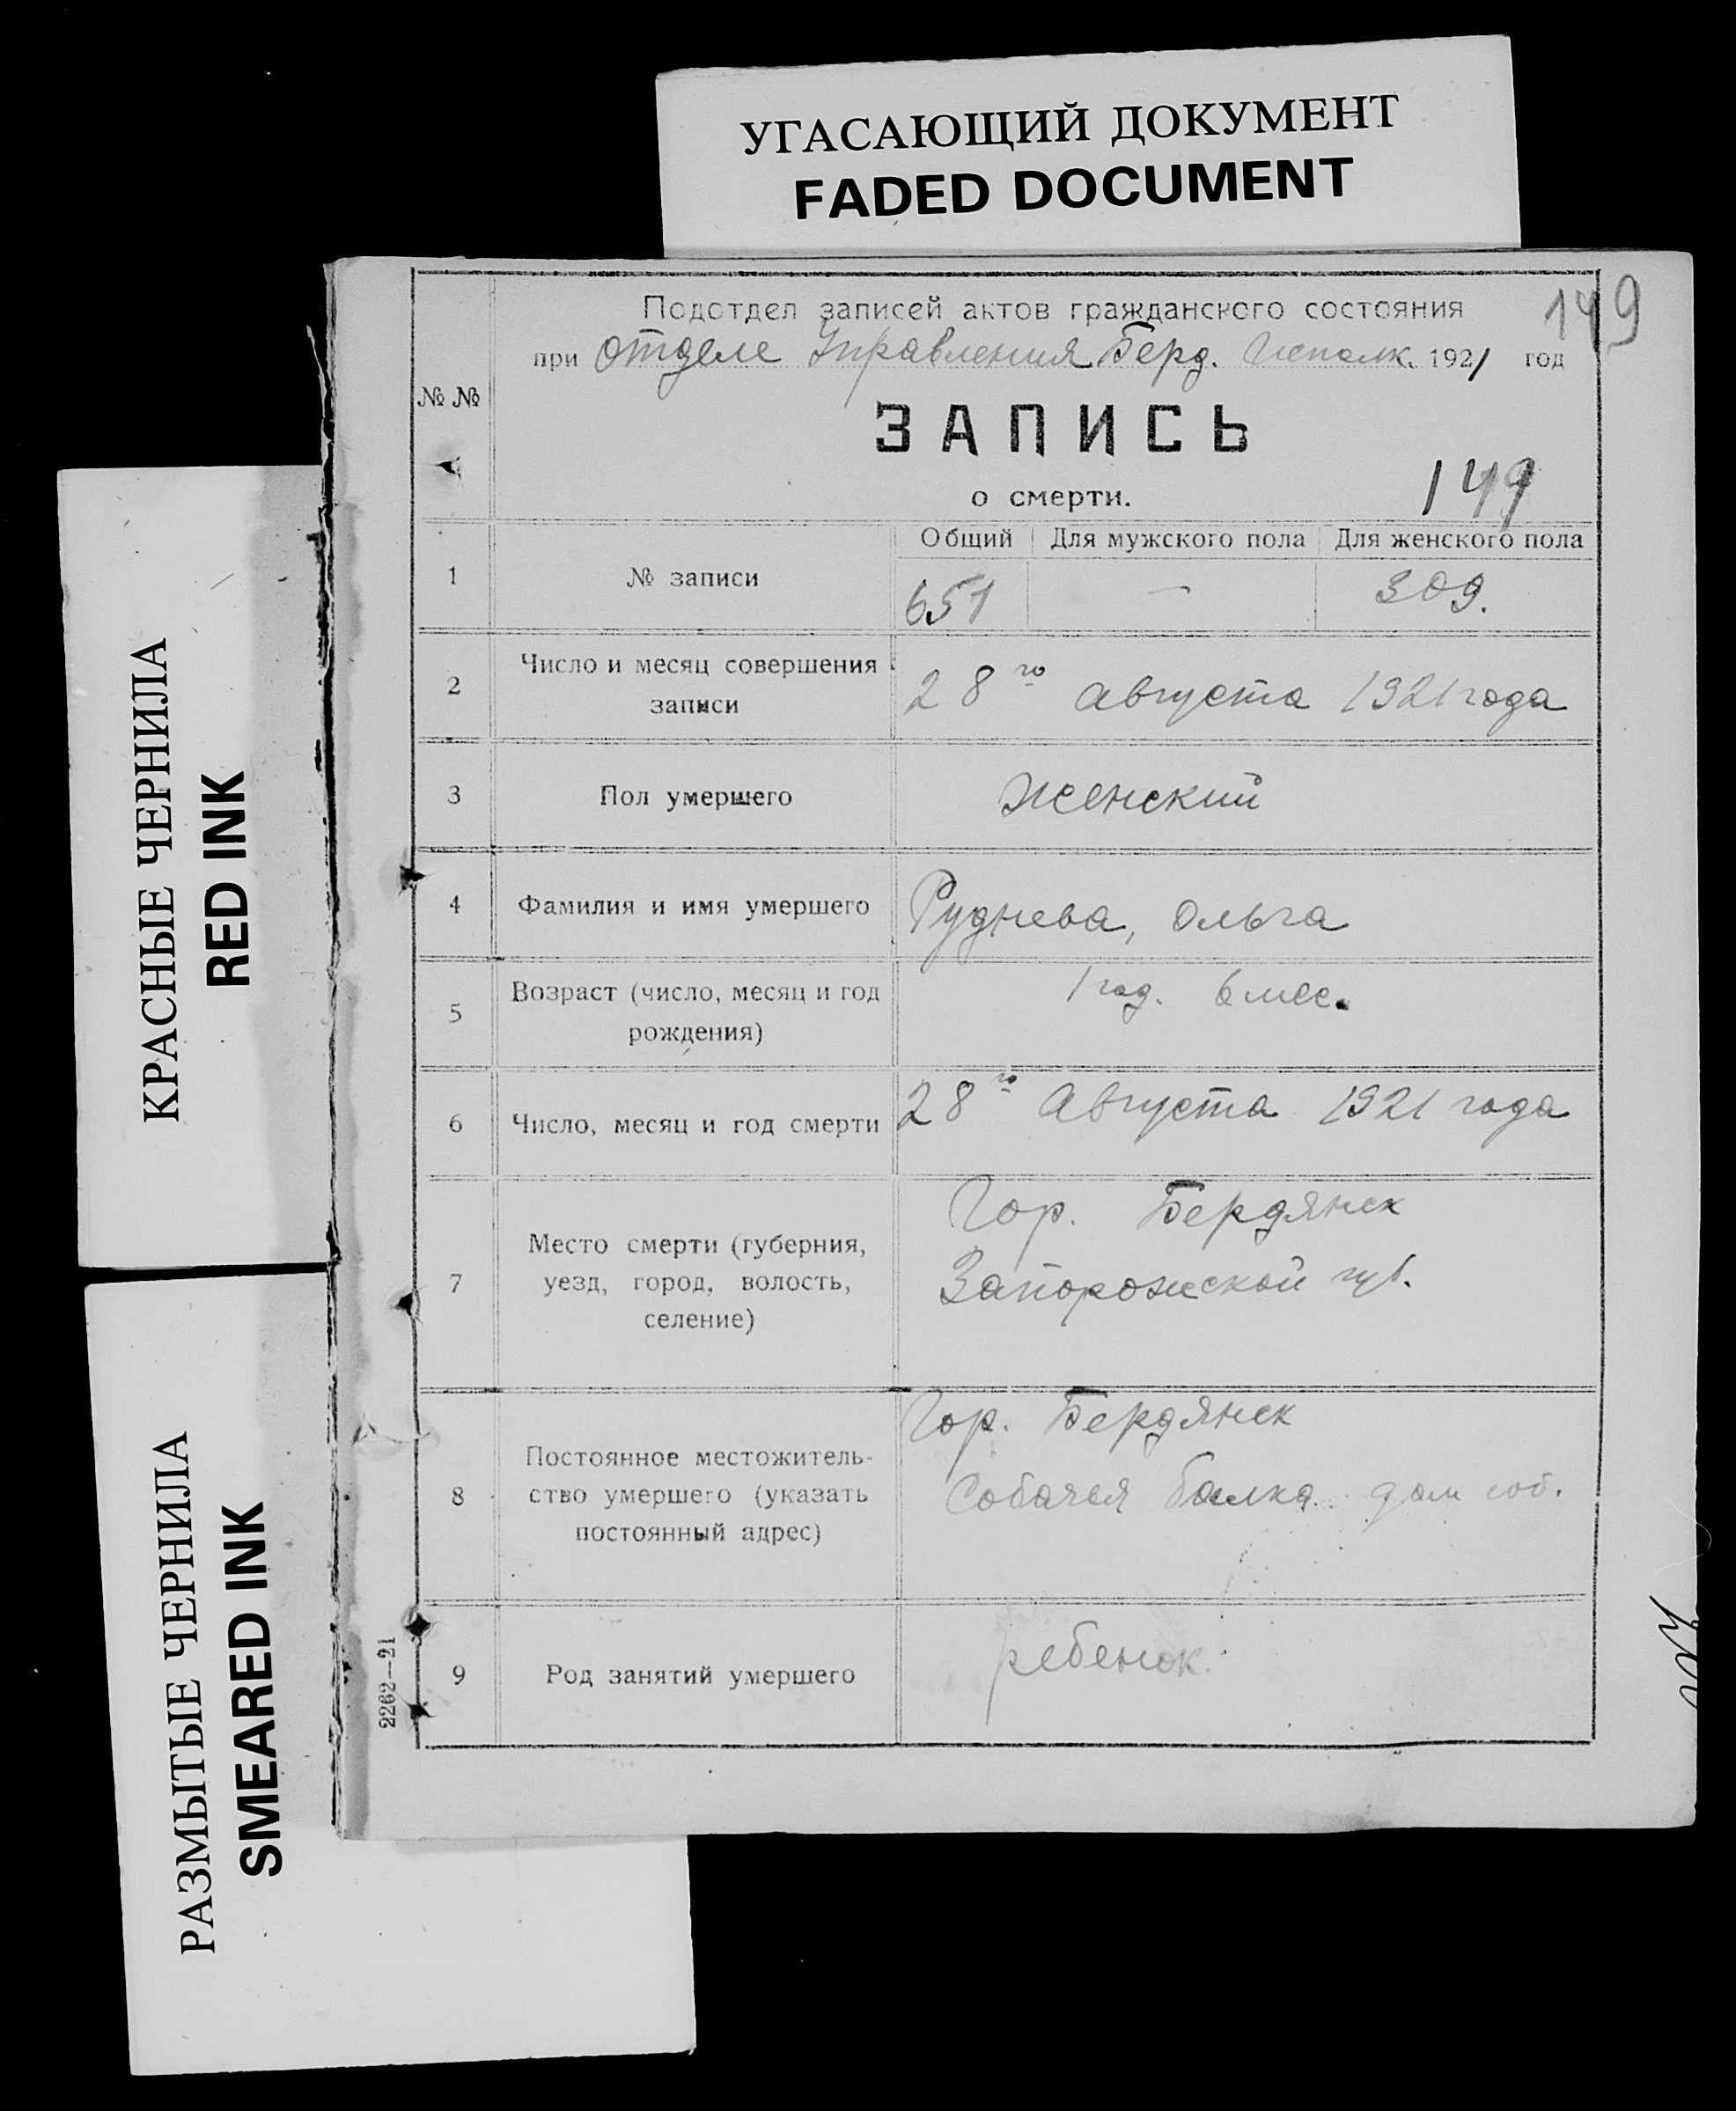 УГАСАЮЩИЙ ДОКУМЕНТ
FADED DOCUMENT
КРАСНЫЕ ЧЕРНИЛА
RED INK
РАЗМЫТЫЕ ЧЕРНИЛА
SMEARED INK
149
Подотдел записей актов гражданского состояния
при Отделе Управления Берд. Исполк. 1921 год
№ №
ЗАПИСЬ
о смерти.
149
Общий Для мужского пола Для женского пола
1 № записи 651 — 309.
2 Число и месяц совершения
записи
28го августа 1921 года
3 Пол умершего женский
4 Фамилия и имя умершего Руднева, Ольга
5 Возраст (число, месяц и год
рождения)
1 год. 6 мес.
6 Число, месяц и год смерти 28го Августа 1921 года
7 Место смерти (губерния,
уезд, город, волость,
селение)
Гор. Бердянск
Запорожской губ.
8 Постоянное местожитель-
ство умершего (указать
постоянный адрес)
Гор. Бердянск
Собачея балка дом соб.
9 Род занятий умершего ребенок.
2262—21